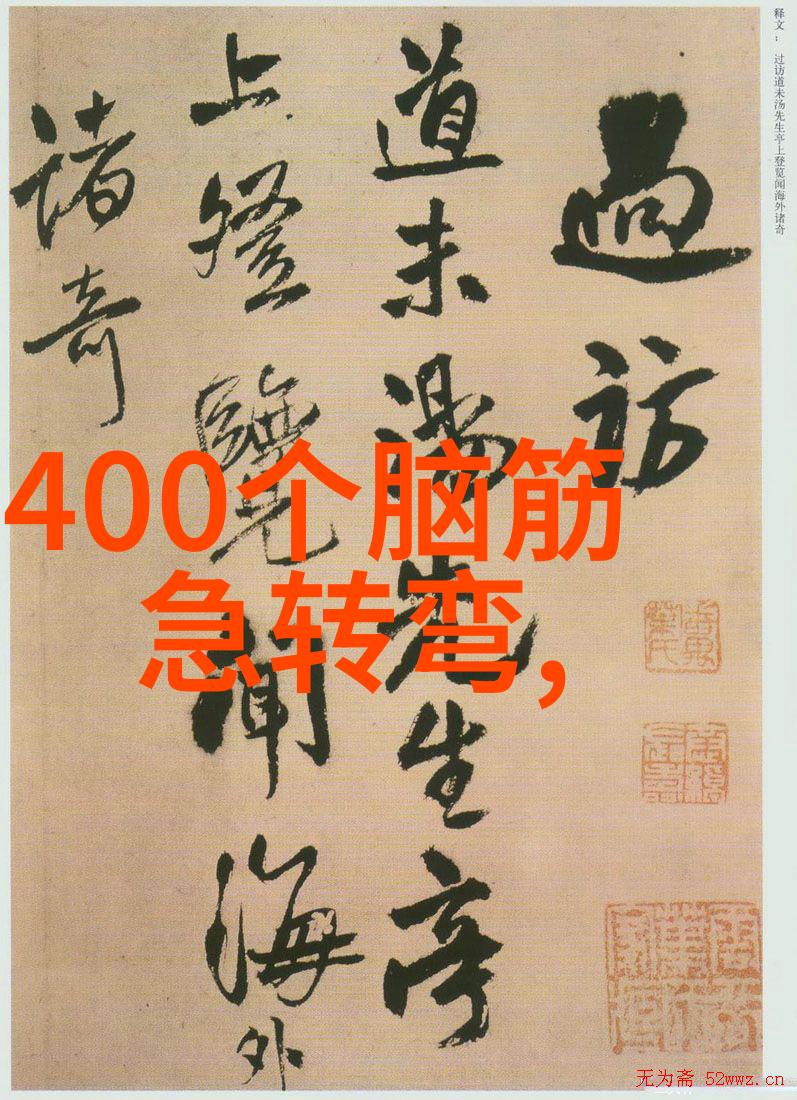 释文： 过访道未汤先生亭上登览闻海外诸奇
過訪
道未湯先生亭
上登覽聞海外
諸奇
400个脑筋
急转弯,
无为斋 52wwz.cn